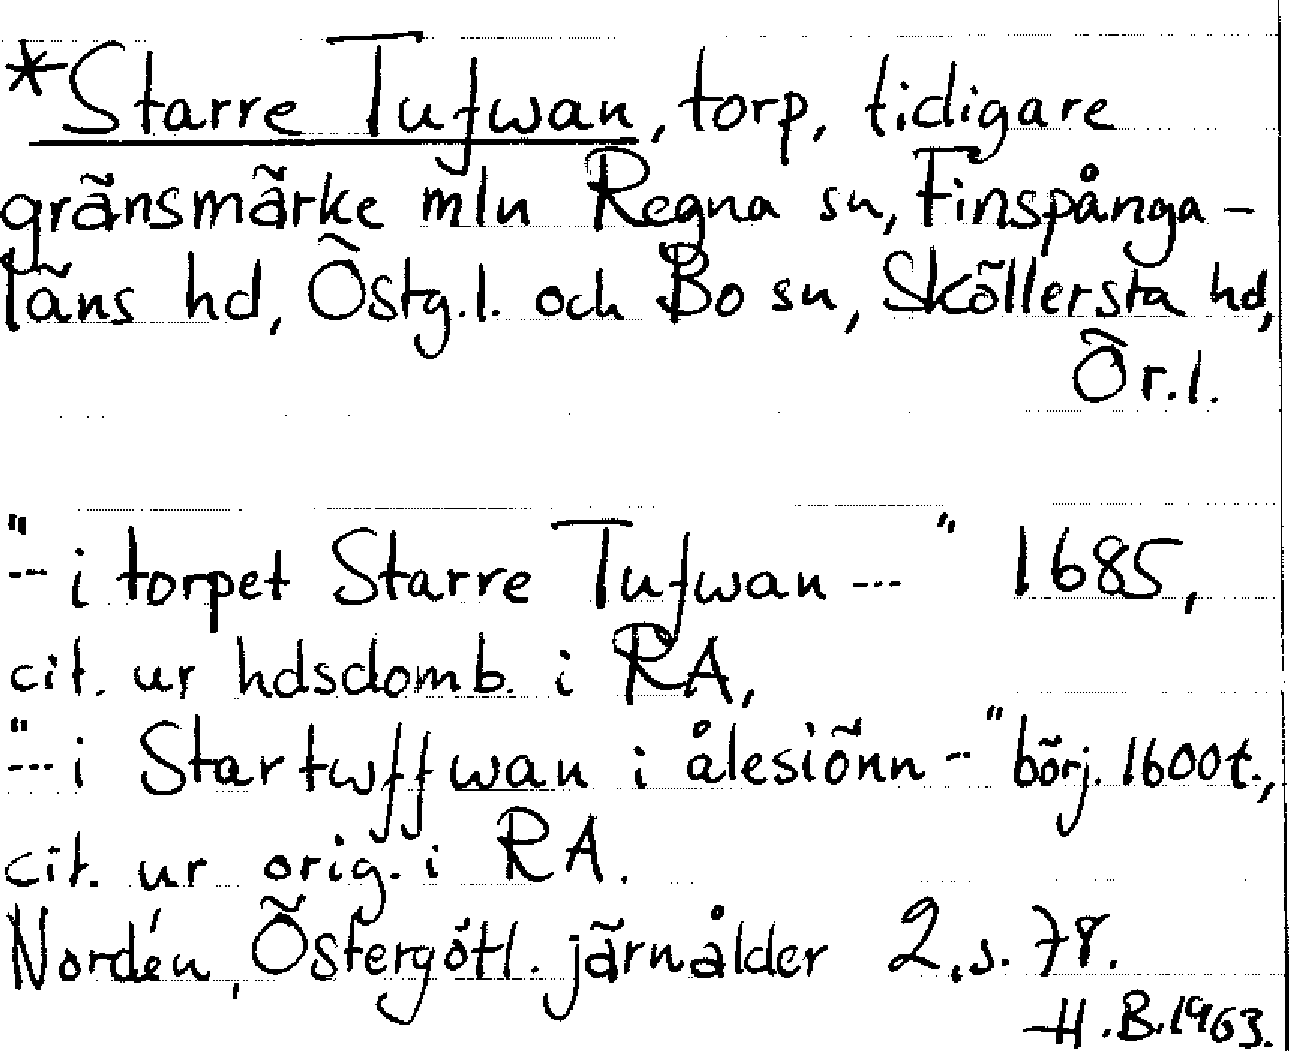 *Starre Tufwan, torp, tidigare
gränsmärke mln Regna sn, Finspånga-
läns hd, Östg.l. och Bo sn, Sköllersta hd,
Ör.l.
"-- i torpet Starre Tufwan ---" 1685,
cit. ur hdsdomb. i RA,
"--- i Startwffwan i ålesiönn --" börj. 1600t.,
cit. ur orig. i RA.
Nordén, Östergötl. järnålder 2, s. 78.
H.B. 1963.